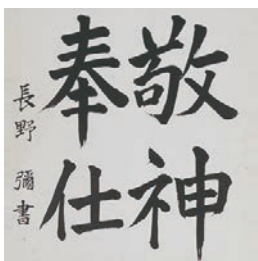 敬神
奉仕
長野 彌書